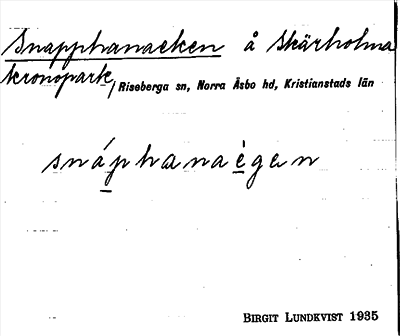 Snapphanaeken å Skärholma
kronopark, Riseberga sn, Norra Åsbo hd, Kristianstads län
snáphanaègen
BIRGIT LUNDKVIST 1935